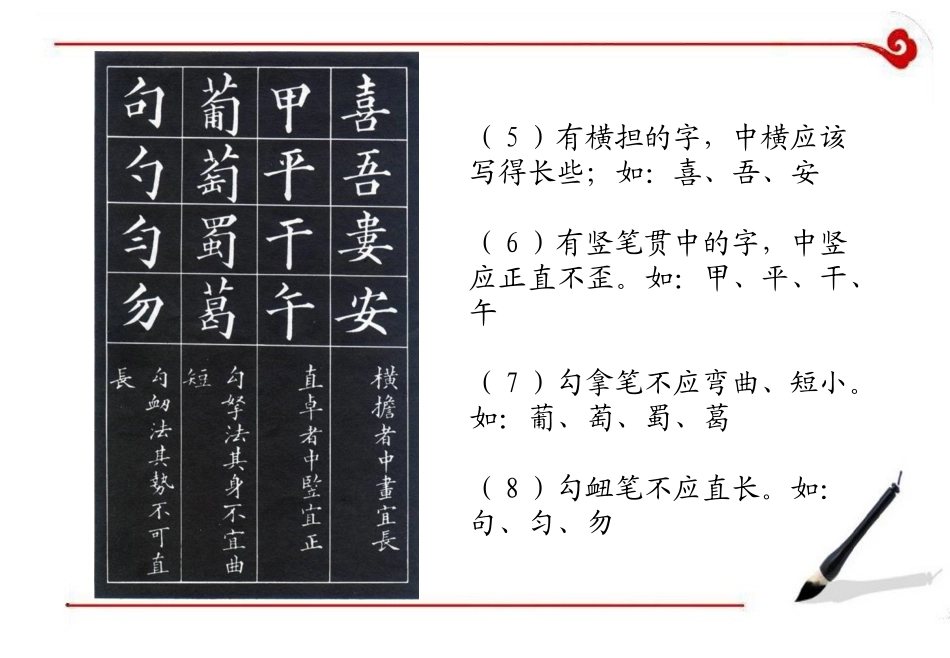 喜吾婁安
橫擔者中畫宜長
甲平干午
直卓者中竪宜正
葡萄蜀葛
勾拏法其身不宜曲
短
句勺匀勿
勾衄法其勢不可直
長
（5）有横担的字，中横应该
写得长些；如：喜、吾、安
（6）有竖笔贯中的字，中竖
应正直不歪。如：甲、平、干、
午
（7）勾拿笔不应弯曲、短小。
如：葡、萄、蜀、葛
（8）勾衄笔不应直长。如：
句、匀、勿